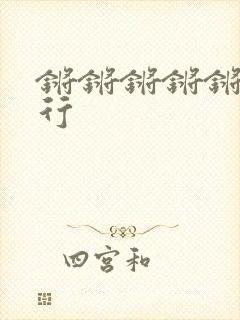 锵锵锵锵锵
行
四宫和